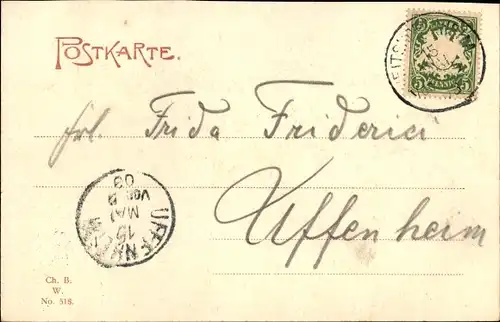 POSTKARTE.
Frl. Frida Friderici
Uffenheim
UFFENHEIM
15
MAI
Vor. 8
03
Ch. B.
W.
No. 318.